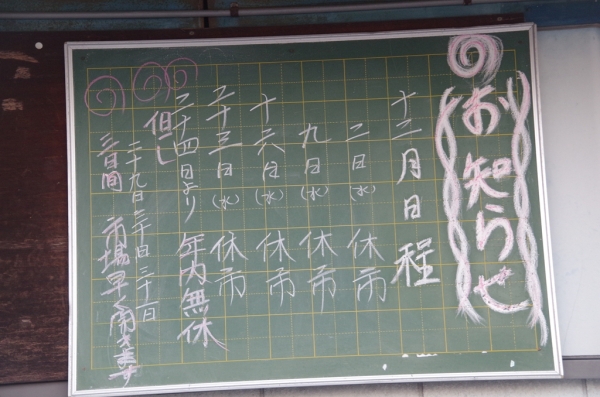 お知らせ
十二月日程
二日(水) 休市
九日(水) 休市
十六日(水) 休市
二十三日(水) 休市
二十四日より 年内無休
但し 二十九日、三十日、三十一日
三日間 市場早く開きます